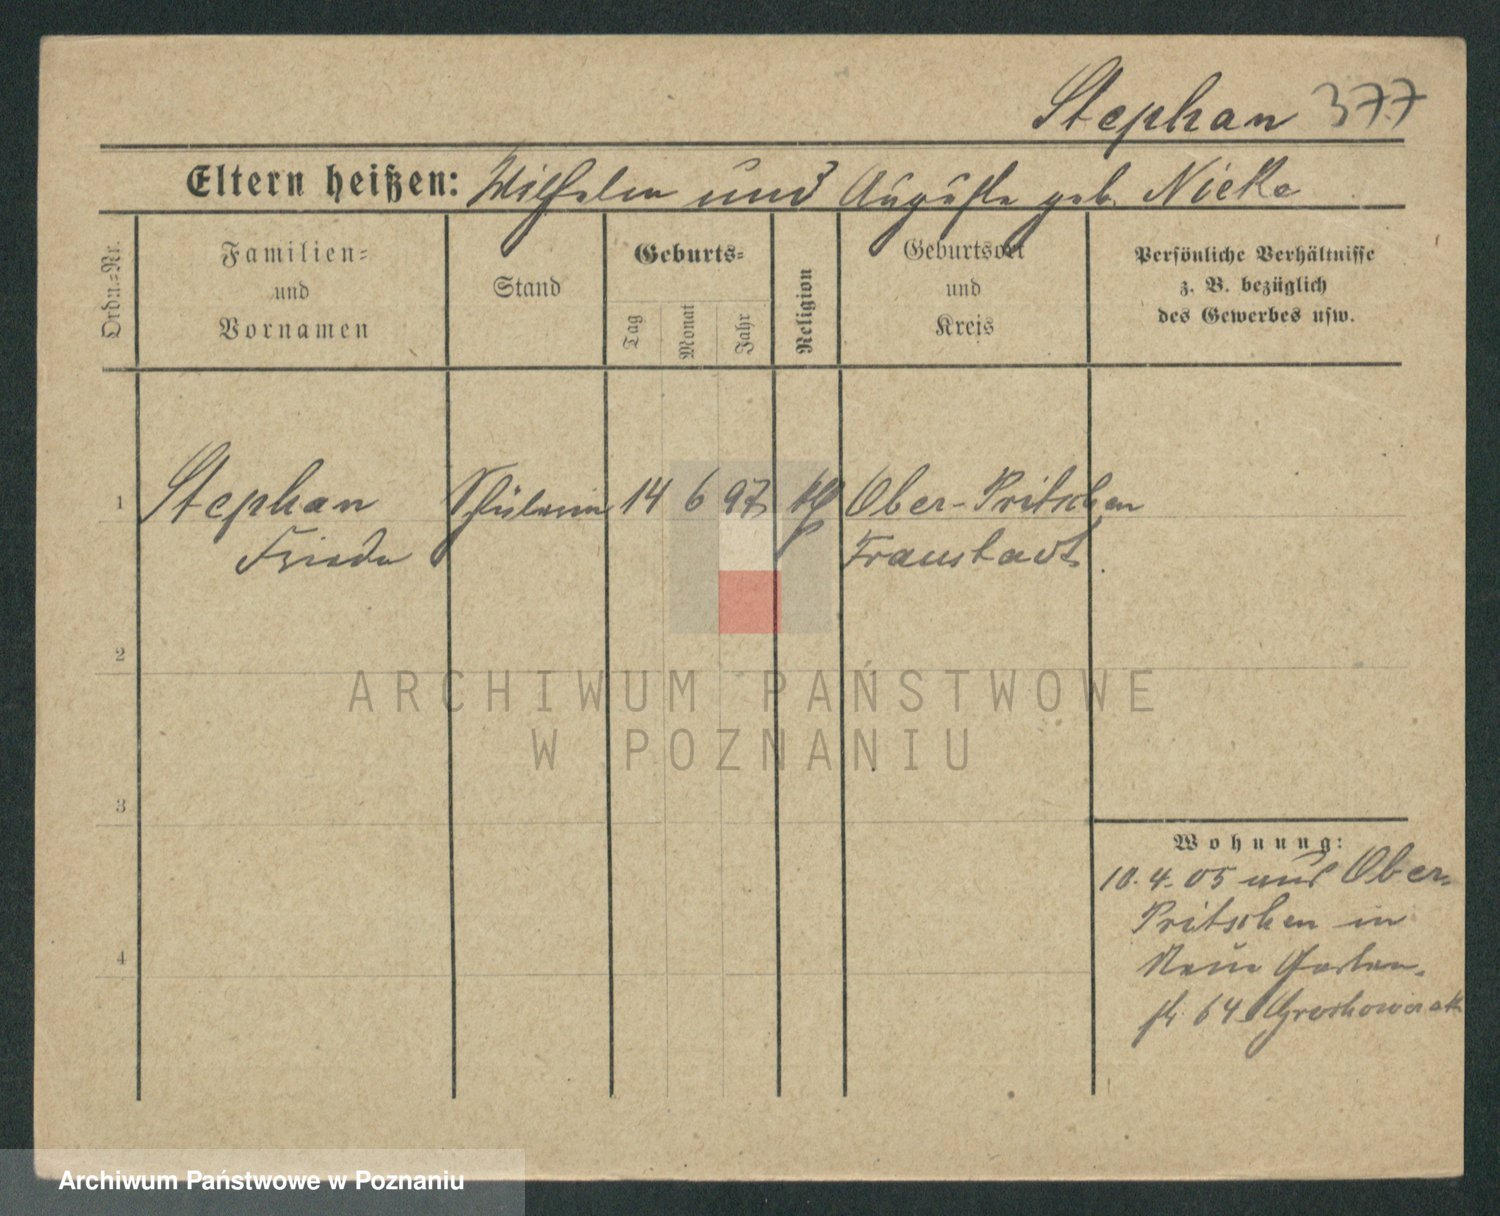 Stephan 377
Eltern heißen: Wilhelm und Auguste geb. Nicke
Ordn.-Nr.
Familien-
und
Vornamen
Stand
Geburts-
Tag
Monat
Jahr
Religion
Geburtsort
und
Kreis
Persönliche Verhältnisse
z. B. bezüglich
des Gewerbes usw.
1 Stephan Schülerin 14 6 97 Ober-Pritschen
Frieda Fraustadt.
2
3
4
Wohnung:
10.4.05 aus Ober-
Pritschen in
Neue Garten-
str 64
ARCHIWUM PAŃSTWOWE
W POZNANIU
Archiwum Państwowe w Poznaniu